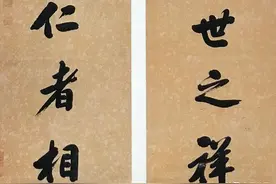 世之祥
仁者相